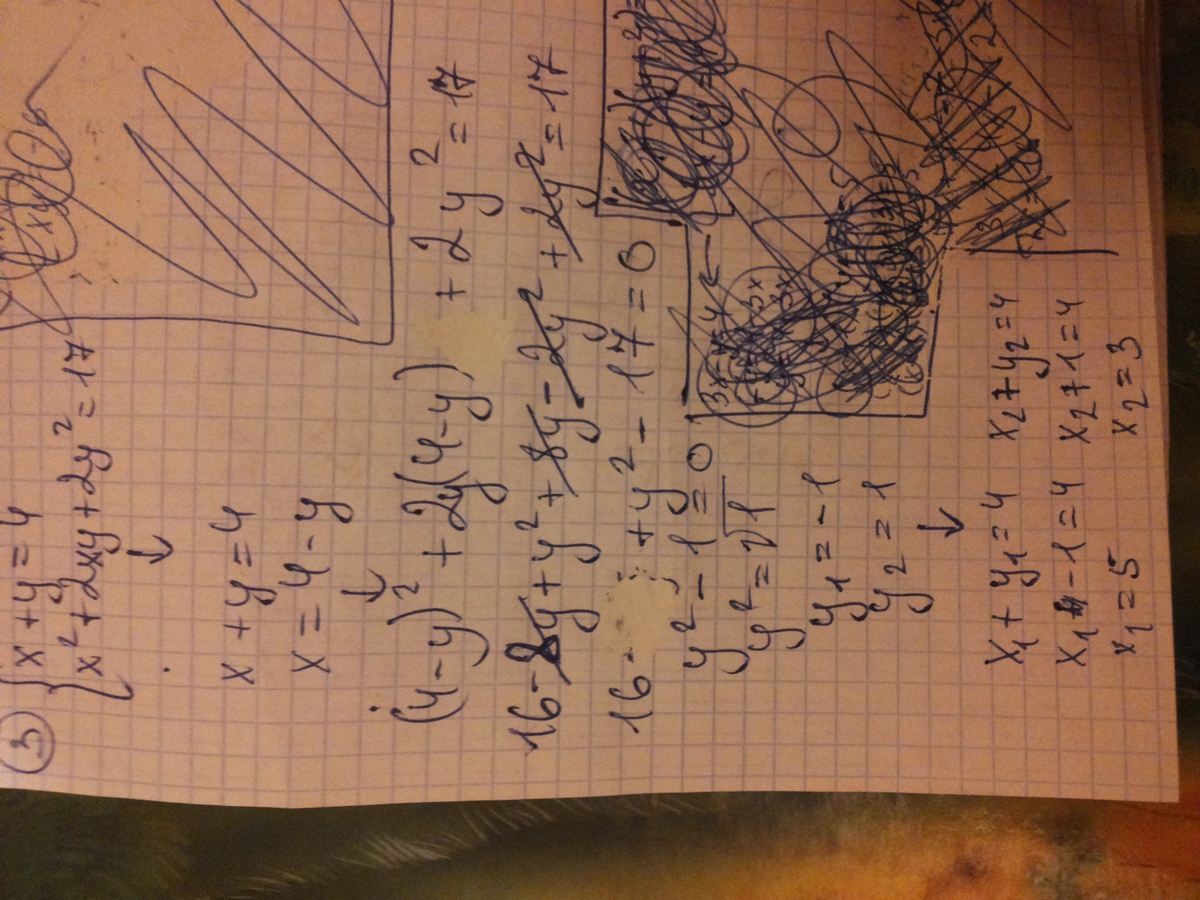 ③ { x + y = 4
x² + 2xy + 2y² = 17
↓
x + y = 4
x = 4 - y
↓
(4-y)² + 2y(4-y) + 2y² = 17
16 - 8y + y² + 8y - 2y² + 2y² = 17
16 - + y² - 17 = 0
y² - 1 = 0
y² = √1
y₁ = -1
y₂ = 1
↓
x₁ + y₁ = 4 x₂ + y₂ = 4
x₁ - 1 = 4 x₂ + 1 = 4
x₁ = 5 x₂ = 3